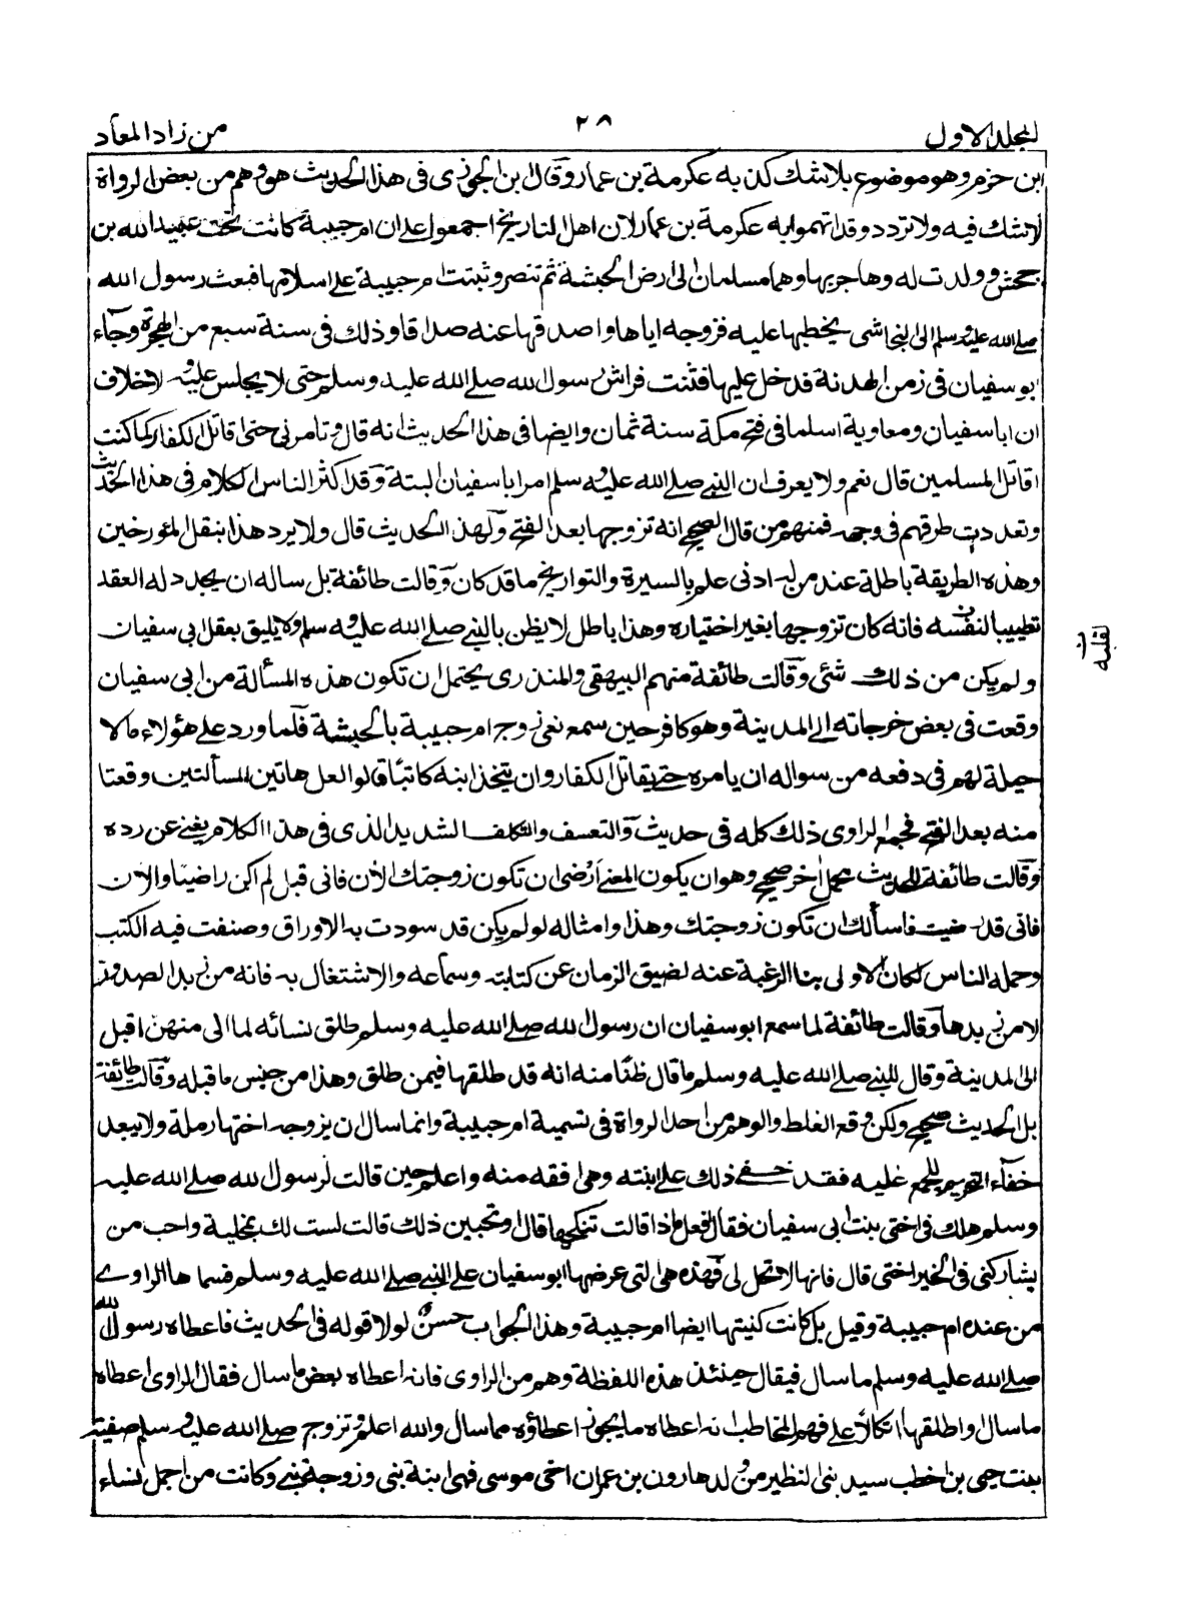 المجلد الاول
٢٨
من زاد المعاد
ابن حزم وهو موضوع بلا شك كذب به عكرمة بن عمار وقال ابن الجوزى فى هذا الحديث هو وهم من بعض الرواة
لا شك فيه ولا تردد وقد اتهموا به عكرمة بن عمار لان اهل التاريخ اجمعوا على ان ام حبيبة كانت تحت عبيد الله بن
جحش وولدت له وهاجر بها وهما مسلمان الى ارض الحبشة ثم تنصر وثبتت ام حبيبة على اسلامها فبعث رسول الله
صلے الله عليه وسلم الى النجاشى يخطبها عليه فزوجه اياها واصدقها عنه صداقا وذلك فى سنة سبع من الهجرة وجآء
ابو سفيان فى زمن الهدنة قدخل عليها فثنت فراش رسول الله صلے الله عليه وسلم حتى لا يجلس عليه ولا خلاف
ان ابا سفيان ومعاوية اسلما فى فتح مكة سنة ثمان وايضا فى هذا الحديث انه قال وتامرنى حتى اقاتل الكفار كما كنت
اقاتل المسلمين قال نعم ولا يعرف ان النبے صلے الله عليه وسلم امر ابا سفيان البتة وقد اكثر الناس الكلام فى هذا الحديث
وتعددت طرقهم فى وجهه فمنهم من قال الصحيح انه تزوجها بعد الفتح ولهذا الحديث قال ولا يرد هذا بنقل المؤرخين
وهذه الطريقة باطلة عند من له ادنى علم بالسيرة والتواريخ ما قد كان وقالت طائفة بل ساله ان يجدد له العقد
تطييبا لنفسه فانه كان تزوجها بغير اختياره وهذا باطل لا يظن بالنبے صلے الله عليه وسلم ولا يليق بعقل ابى سفيان
لقلبه
ولم يكن من ذلك شئى وقالت طائفة منهم البيهقى والمنذرى يحتمل ان تكون هذه المسألة من ابى سفيان
وقعت فى بعض خرجاته الے المدينة وهو كافر حين سمع نعى زوج ام حبيبة بالحبشة فلما ورد على هؤلاء ما لا
حيلة لهم فى دفعه من سواله ان يامره حتے يقاتل الكفار وان يتخذ ابنه كاتبا قالوا لعل هاتين المسألتين وقعتا
منه بعد الفتح فجمع الراوى ذلك كله فى حديث والتعسف والتكلف الشديد الذى فى هذا الكلام يغنے عن رده
وقالت طائفة للحديث محمل اخر صحيح وهو ان يكون المعنے ارضى ان تكون زوجتك الان فانى قبل لم اكن راضيا والان
فانى قد رضيت فاسألك ان تكون زوجتك وهذا وامثاله لو لم يكن قد سودت به الاوراق وصنفت فيه الكتب
وحمله الناس لكان الاولى بنا الرغبة عنه لضيق الزمان عن كتابته وسماعه والاشتغال به فانه من زبد الصدور
لا من زبدها وقالت طائفة لما سمع ابو سفيان ان رسول الله صلے الله عليه وسلم طلق نسائه لما الى منهن اقبل
الى المدينة وقال للنبے صلے الله عليه وسلم ما قال ظنا منه انه قد طلقها فيمن طلق وهذا من جنس ما قبله وقالت طائفة
بل الحديث صحيح ولكن وقع الغلط والوهم من احد الرواة فى تسمية ام حبيبة وانما سال ان يزوجه اختها رملة ولا يبعد
خفآء التحريم للجمع عليه فقد خفے ذلك على ابنته وهى افقه منه واعلم حين قالت لرسول الله صلے الله عليه
وسلم هل لك فى اختى بنت ابى سفيان فقال افعل ماذا قالت تنكحها قال اوتحبين ذلك قالت لست لك بمخلية واحب من
يشاركنى فى الخير اختى قال فانها لا تحل لى فهذه هى التى عرضها ابو سفيان على النبے صلے الله عليه وسلم فسماها الراوے
من عنده ام حبيبة وقيل بل كانت كنيتها ايضا ام حبيبة وهذا الجواب حسن لولا قوله فى الحديث فاعطاه رسول الله
صلے الله عليه وسلم ما سال فيقال حينئذ هذه اللفظة وهم من الراوى فانه اعطاه بعض ما سال فقال الراوى اعطاه
ما سال او اطلقها اتكالا على فهم المخاطب انه اعطاه ما يجوز اعطاؤه مما سال والله اعلم وتزوج صلے الله عليه وسلم صفية
بنت حيى بن اخطب سيد بنى النظير من ولد هارون بن عمران اخى موسى فهى ابنة نبى وزوجة نبے وكانت من اجمل نساء